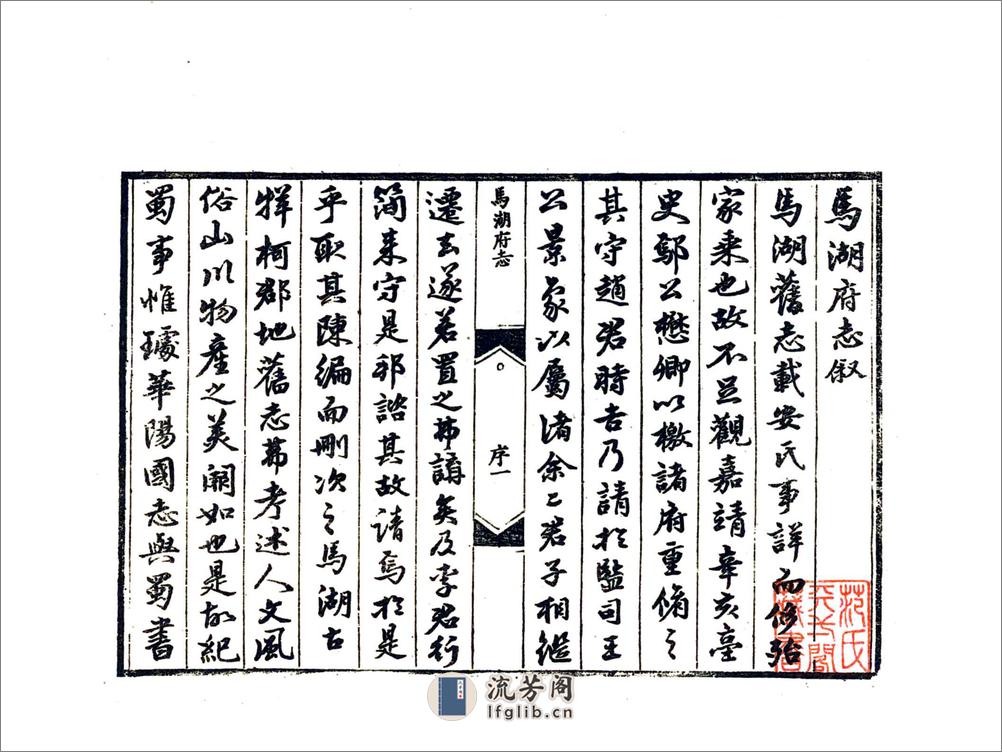 馬湖府志叙
馬湖舊志載安氏事詳而侈殆
家乘也故不足觀嘉靖辛亥臺
史鄢公懋卿以檄諸府重脩之
其守趙君時吉乃請扵監司王
公景象以屬渚余二君子相繼
馬湖府志
序一
遷去遂若置之弗講矣及李君行
簡来守是邦諮其故請焉扵是
乎取其陳編而刪次之馬湖古
牂柯郡地舊志弗考述人文風
俗山川物產之美闕如也是故紀
蜀事惟璩華陽國志與蜀書
范氏
天一閣
藏書
流芳阁
lfglib.cn